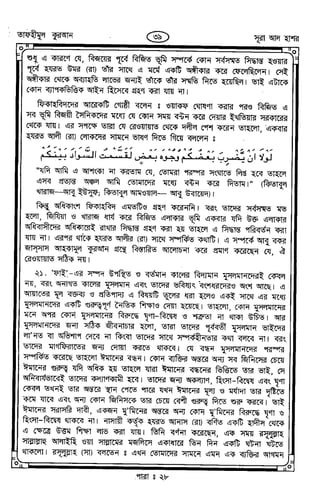 তাফহীমুল কুরআন
৩৯
সূরা আল হাশর
শুধু এ কারণে যে, বিজয়ের পূর্বে বিজিত ভূমি সম্পর্কে কোন সর্বসম্মত সিদ্ধান্ত হওয়ার
পূর্বে হযরত উমর (রা) তাঁর সাথে এ মর্মে একটি অঙ্গীকার করে ফেলেছিলেন। সেই
অঙ্গীকার থেকে অব্যাহতি লাভের জন্যই তাকে তাঁর সম্মতি নিতে হয়েছিল। তাই এটাকে
কোন ব্যাপকভিত্তিক আইন হিসেবে গ্রহণ করা যায় না।
ফিকাহবিদদের আরেকটি গোষ্ঠী বলেন : ওয়াকফ ঘোষণা করার পরও বিজিত এ
সব ভূমি বিজয়ী সৈনিকদের মধ্যে যে কোন সময় বন্টন করে দেয়ার ইখতিয়ার সরকারের
থেকে যায়। এর সপক্ষে তারা যে রেওয়ায়াত থেকে দলীল পেশ করেন তাহলো, একবার
হযরত আলী (রা) লোকদের সামনে ভাষণ দিতে গিয়ে বললেন :
لولا ان يضرب بعضكم وجوه بعض لقسمت السواد بينكم -
"যদি আমি এ আশংকা না করতাম যে, তোমরা পরস্পর সংঘাতে লিপ্ত হবে তাহলে
এসব প্রত্যন্ত অঞ্চল আমি তোমাদের মধ্যে বন্টন করে দিতাম।" (কিতাবুল
খারাজ—আবু ইউসুফ, কিতাবুল আমওয়াল— আবু উবায়েদ)।
কিন্তু অধিকাংশ ফিকাহবিদ এমতটিও গ্রহণ করেননি। বরং তাদের সর্বসম্মত মত
হলো, জিযিয়া ও খারাজ ধার্য করে বিজিত এলাকার ভূমি একবার যদি উক্ত এলাকার
অধিবাসীদের অধিকারেই রাখার সিদ্ধান্ত গ্রহণ করা হয় তাহলে এ সিদ্ধান্ত পরিবর্তন করা
যায় না। এরপর থাকে হযরত আলীর (রা) সাথে সম্পর্কিত কথাটি। এ সম্পর্কে আবু বকর
জাস্‌সাস আহকামুল কুরআন গ্রন্থে বিস্তারিত আলোচনা করে প্রমাণ করেছেন যে, এ
রেওয়ায়াত সঠিক নয়।
২১. 'ফাই'-এর সম্পদ উপস্থিত ও বর্তমান কালের বিদ্যমান মুসলমানদেরই কেবল
নয়, বরং অনাগত কালের মুসলমান এবং তাদের ভবিষ্যৎ বংশধরদেরও অংশ আছে। এ
আয়াতের মূল বক্তব্য ও প্রতিপাদ্য এ বিষয়টি তুলে ধরা হলেও একই সাথে এর মধ্যে
মুসলমানদেরকে একটি গুরুত্বপূর্ণ নৈতিক শিক্ষাও দেয়া হয়েছে। তাহলো, কোন মুসলমানের
মনে অপর কোন মুসলমানের বিরুদ্ধে ঘৃণা-বিদ্বেষ ও শত্রুতা না থাকা উচিত। আর
মুসলমানদের জন্য সঠিক জীবনাচার হলো, তারা তাদের পূর্ববর্তী মুসলমান ভাইদের
লা'নত বা অভিশাপ দেবে না কিংবা তাদের সাথে সম্পর্কহীনতার কথা বলবে না। বরং
তাদের মাগফিরাতের জন্য দোয়া করতে থাকবে। যে বন্ধন মুসলমানদেরকে পরস্পর
সম্পর্কিত করেছে তাহলো ঈমানের বন্ধন। কোন ব্যক্তির অন্তরে অন্য সব জিনিসের চেয়ে
ঈমানের গুরুত্ব যদি অধিক হয় তাহলে যারা ঈমানের বন্ধনের ভিত্তিতে তার ভাই, সে
অনিবার্যভাবেই তাদের কল্যাণকামী হবে। তাদের জন্য অকল্যাণ, হিংসা-বিদ্বেষ এবং ঘৃণা
কেবল তখনই তার অন্তরে স্থান পেতে পারে যখন ঈমানের মূল্য ও মর্যাদা তার দৃষ্টিতে
কমে যাবে এবং অন্য কোন জিনিসকে তার চেয়ে বেশী গুরুত্ব দিতে শুরু করবে। তাই
ঈমানের সরাসরি দাবী, একজন মু'মিনের অন্তরে অন্য কোন মু'মিনের বিরুদ্ধে ঘৃণা ও
হিংসা-বিদ্বেষ থাকবে না। নাসায়ী কর্তৃক হযরত আনাস (রা) বর্ণিত একটি হাদীস থেকে
এ ক্ষেত্রে উত্তম শিক্ষা লাভ করা যায়। তিনি বর্ণনা করেছেন, এক সময় রসূলুল্লাহ
সাল্লাল্লাহু আলাইহি ওয়া সাল্লামের মজলিসে একাধারে তিন দিন একটি ঘটনা ঘটতে
থাকলো। রসূলুল্লাহ (সা) বলতেন : এখন তোমাদের সামনে এমন এক ব্যক্তির আগমন
পারা : ২৮